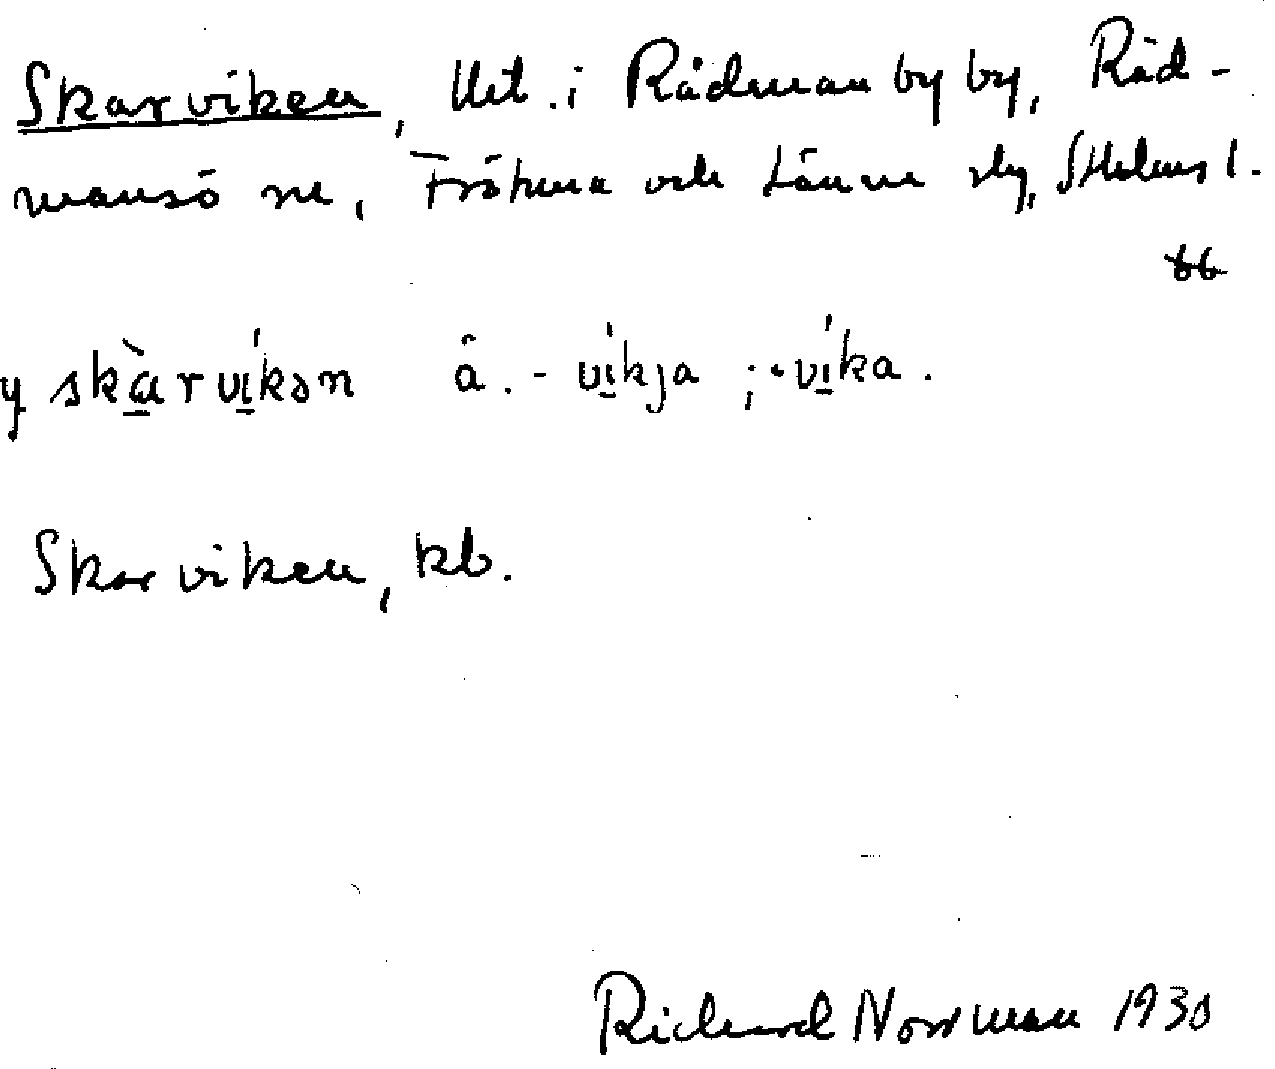 Skarviken, Utt. i Rådmanby by, Råd-
mansö sn, Frötuna och Länna slg, Sthlms l.
bb
y skàrvíkən â. - víkja ; - víka.
Skarviken, kb.
Richard Norrman 1930